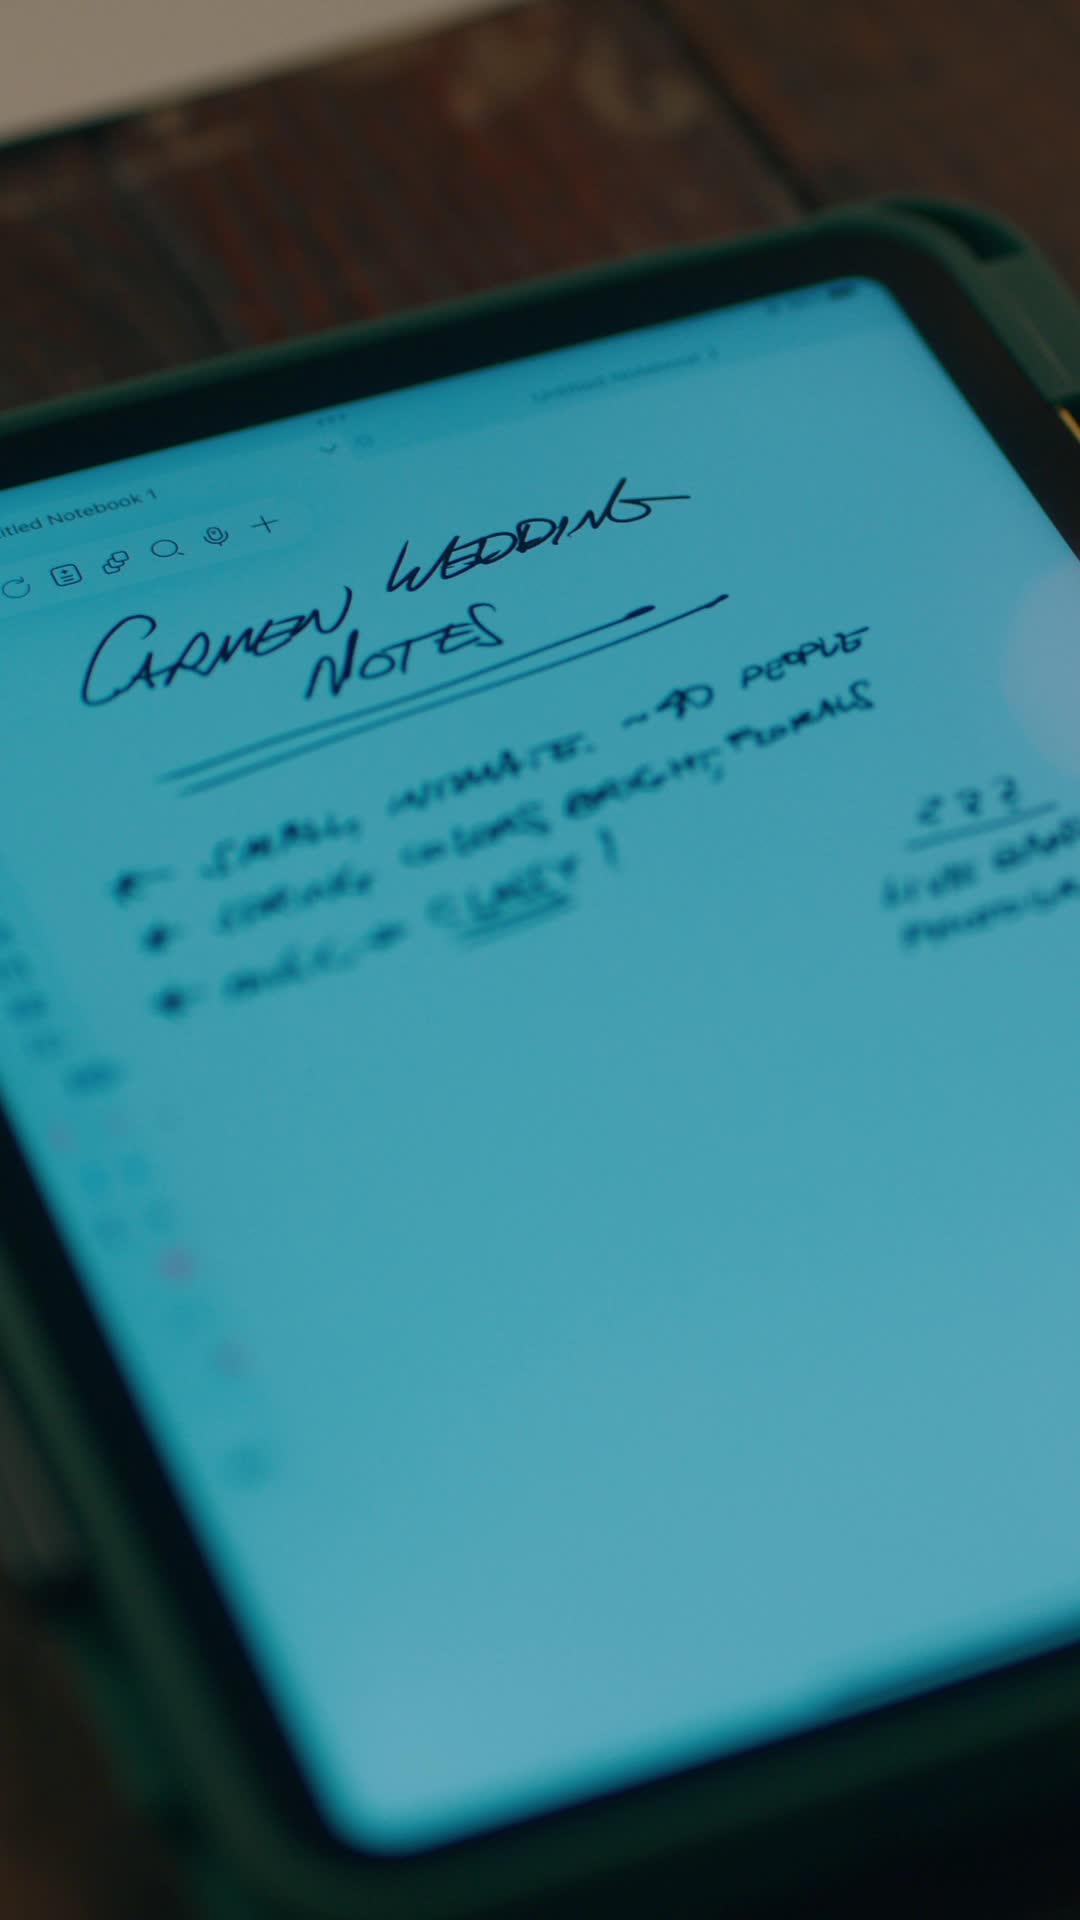 Untitled Notebook 2
itled Notebook 1
CARMEN WEDDING
NOTES
SMALL, INTIMATE. ~40 PEOPLE
COLORS BRIGHT, FLORALS
CLASSY!
???